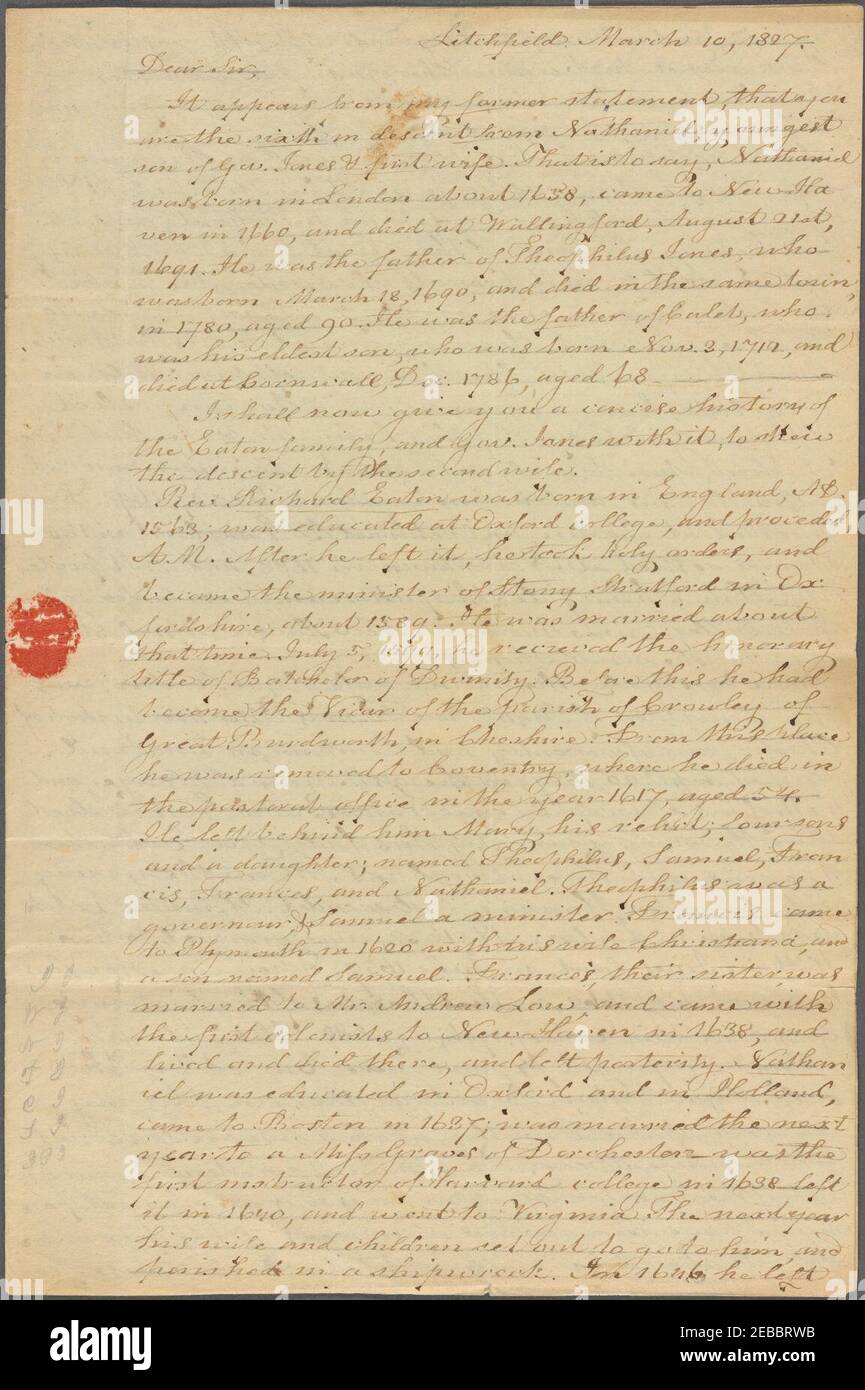 Litchfield March 10, 1827.
Dear Sir,
It appears from my former statement, that you
are the sixth in descent from Nathaniel, youngest
son of Gov. Jones & first wife. That is to say, Nathaniel
was born in London about 1638, came to New-Ha
ven in 1660, and died at Wallingford, August 21st,
1691. He was the father of Theophilus Jones, who
was born March 18, 1690, and died in the same town,
in 1780, aged 90. He was the father of Caleb, who
was his eldest son, who was born Nov. 3, 1712, and
died at Cornwall, Dec. 1786, aged 68
I shall now give you a concise history of
the Eaton family, and gov. Jones with it, to shew
the descent by the second wife.
Rev. Richard Eaton was born in England, AD.
1563; was educated at Oxford college, and proceded
A.M. After he left it, he took holy orders, and
became the minister of Stony Stratford in Ox
fordshire, about 1589. He was married about
that time. July 5, he received the honorary
title of Batchelor of Divinity. Before this he had
become the Vicar of the parish of Crowley of
Great Burdworth, in Cheshire. From this place
he was removed to Coventry, where he died in
the pastoral office in the year 1617, aged 54.
He left behind him Mary, his relict; four sons
and a daughter; named Theophilus, Samuel, Fran
cis, Frances, and Nathaniel. Theophilus was a
governour, & Samuel a minister. Francis came
to Plymouth in 1620 with his wife Christiana, and
a son named Samuel. Frances, their sister, was
married to Mr. Andrew Low, and came with
the first colonists to New-Haven in 1638, and
lived and died there, and left posterity. Nathan
iel was educated in Oxford and in Holland,
came to Boston in 1637; was married the next
year to a Miss Graves of Dorchester was the
first instructor of Harvard college in 1638 left
it in 1640, and went to Virginia The next year
his wife and children set out to go to him, and
perished in a shipwreck. In 1646 he left
alamy
Image ID: 2EBBRWB
www.alamy.com